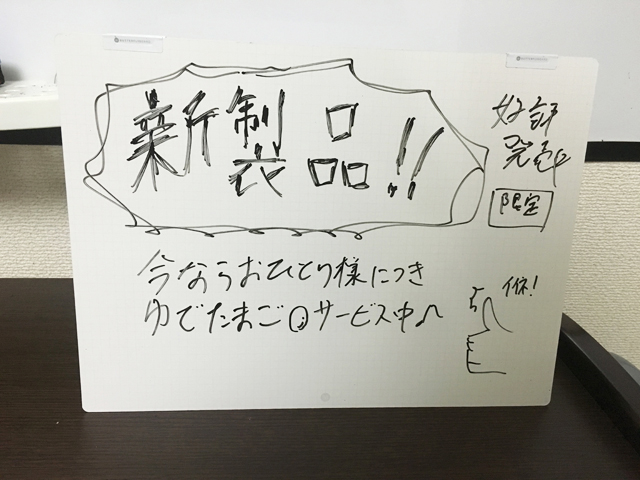 新製品!!
好評
発売中
限定
今ならおひとり様につき
ゆでたまごサービス中♪